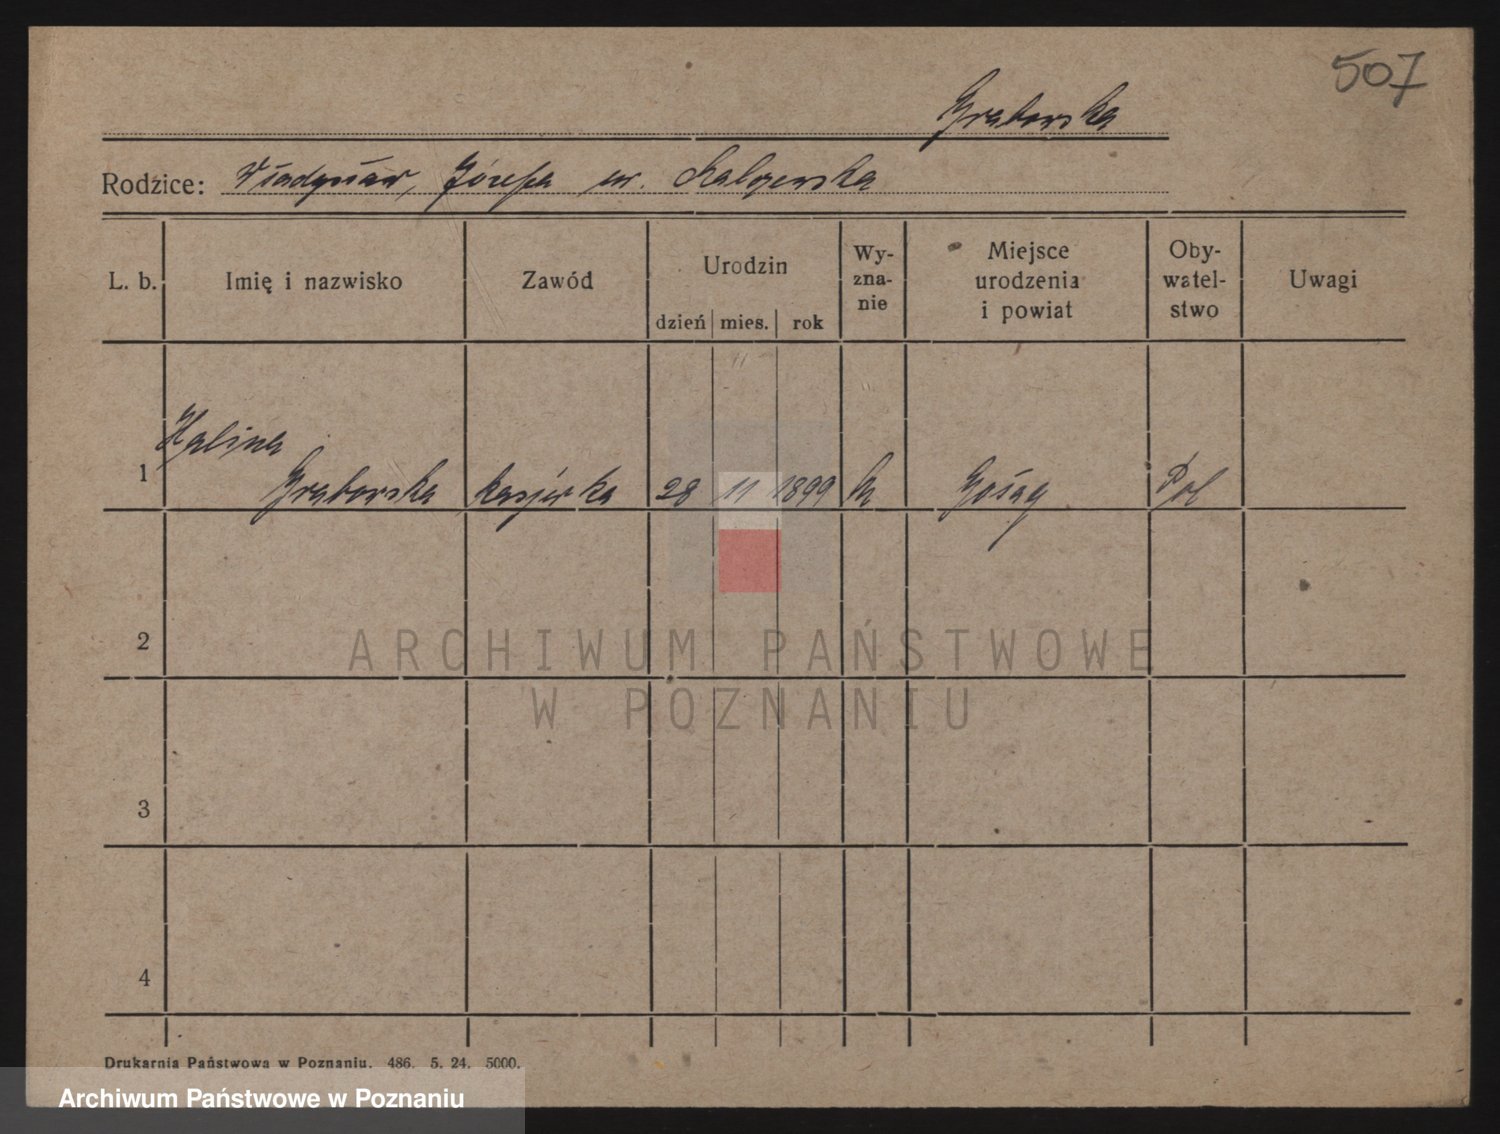 507
Grabowska
Rodzice: Władysław, Józefa ur.
L. b. Imię i nazwisko Zawód Urodzin dzień mies. rok Wy-zna-nie Miejsce urodzenia i powiat Oby-watel-stwo Uwagi
Halina
1 Grabowska kasjerka 28 11 1899 Pol
2
ARCHIWUM PAŃSTWOWE
W POZNANIU
3
4
Drukarnia Państwowa w Poznaniu. 486. 5. 24. 5000.
Archiwum Państwowe w Poznaniu